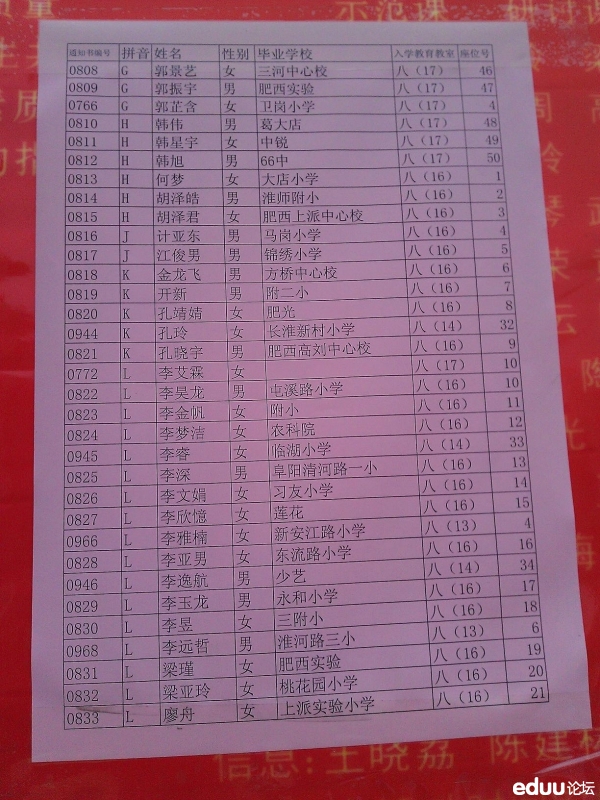 示范课 研讨课
质量
通知书编号 拼音 姓名 性别 毕业学校 入学教育教室 座位号
0808 G 郭景艺 女 三河中心校 八（17） 46
0809 G 郭振宇 男 肥西实验 八（17） 47
0766 G 郭芷含 女 卫岗小学 八（17） 4
0810 H 韩伟 男 葛大店 八（17） 48
0811 H 韩星宇 女 中锐 八（17） 49
0812 H 韩旭 男 66中 八（17） 50
0813 H 何梦 女 大店小学 八（16） 1
0814 H 胡泽皓 男 淮师附小 八（16） 2
0815 H 胡泽君 女 肥西上派中心校 八（16） 3
0816 J 计亚东 男 马岗小学 八（16） 4
0817 J 江俊男 男 锦绣小学 八（16） 5
0818 K 金龙飞 男 方桥中心校 八（16） 6
0819 K 开新 男 附二小 八（16） 7
0820 K 孔靖婧 女 肥光 八（16） 8
0944 K 孔玲 女 长淮新村小学 八（14） 32
0821 K 孔晓宇 男 肥西高刘中心校 八（16） 9
0772 L 李艾霖 女 八（17） 10
0822 L 李昊龙 男 屯溪路小学 八（16） 10
0823 L 李金帆 女 附小 八（16） 11
0824 L 李梦洁 女 农科院 八（16） 12
0945 L 李睿 女 临湖小学 八（14） 33
0825 L 李深 男 阜阳清河路一小 八（16） 13
0826 L 李文娟 女 习友小学 八（16） 14
0827 L 李欣憶 女 莲花 八（16） 15
0966 L 李雅楠 女 新安江路小学 八（13） 4
0828 L 李亚男 女 东流路小学 八（16） 16
0946 L 李逸航 男 少艺 八（14） 34
0829 L 李玉龙 男 永和小学 八（16） 17
0830 L 李昱 女 三附小 八（16） 18
0968 L 李远哲 男 淮河路三小 八（13） 6
0831 L 梁瑾 女 肥西实验 八（16） 19
0832 L 梁亚玲 女 桃花园小学 八（16） 20
0833 L 廖舟 女 上派实验小学 八（16） 21
信息：王晓荔 陈建
eduu论坛